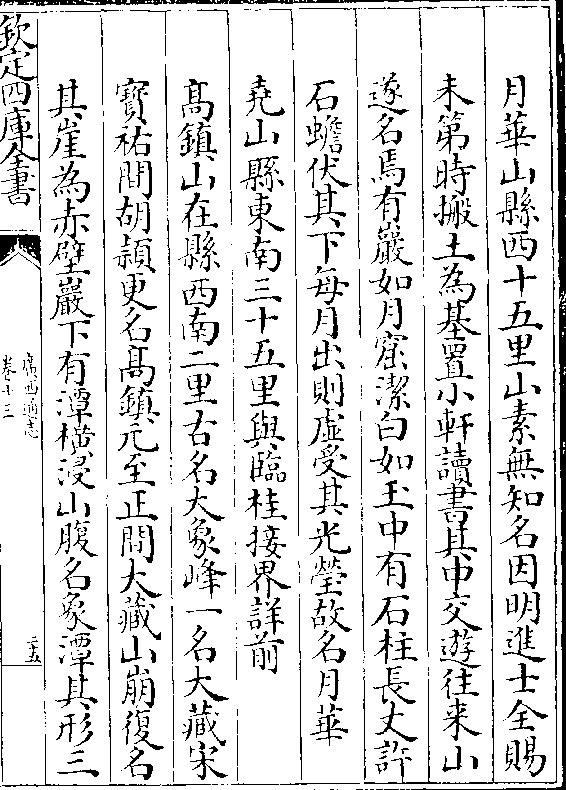 月華山縣西十五里山素無知名因明進士全賜
未第時搬土為基置小軒讀書其中交遊往来山
遂名焉有巖如月窟潔白如玉中有石柱長丈許
石蟾伏其下每月出則虚受其光瑩故名月華
堯山縣東南三十五里與臨桂接界詳前
髙鎮山在縣西南二里右名大象峰一名大藏宋
寳祐間胡頴更名髙鎮元至正間大藏山崩復名
其崖為赤壁巖下有潭横浸山腹名象潭其形三
欽定四庫全書
廣西通志
卷十三
二五